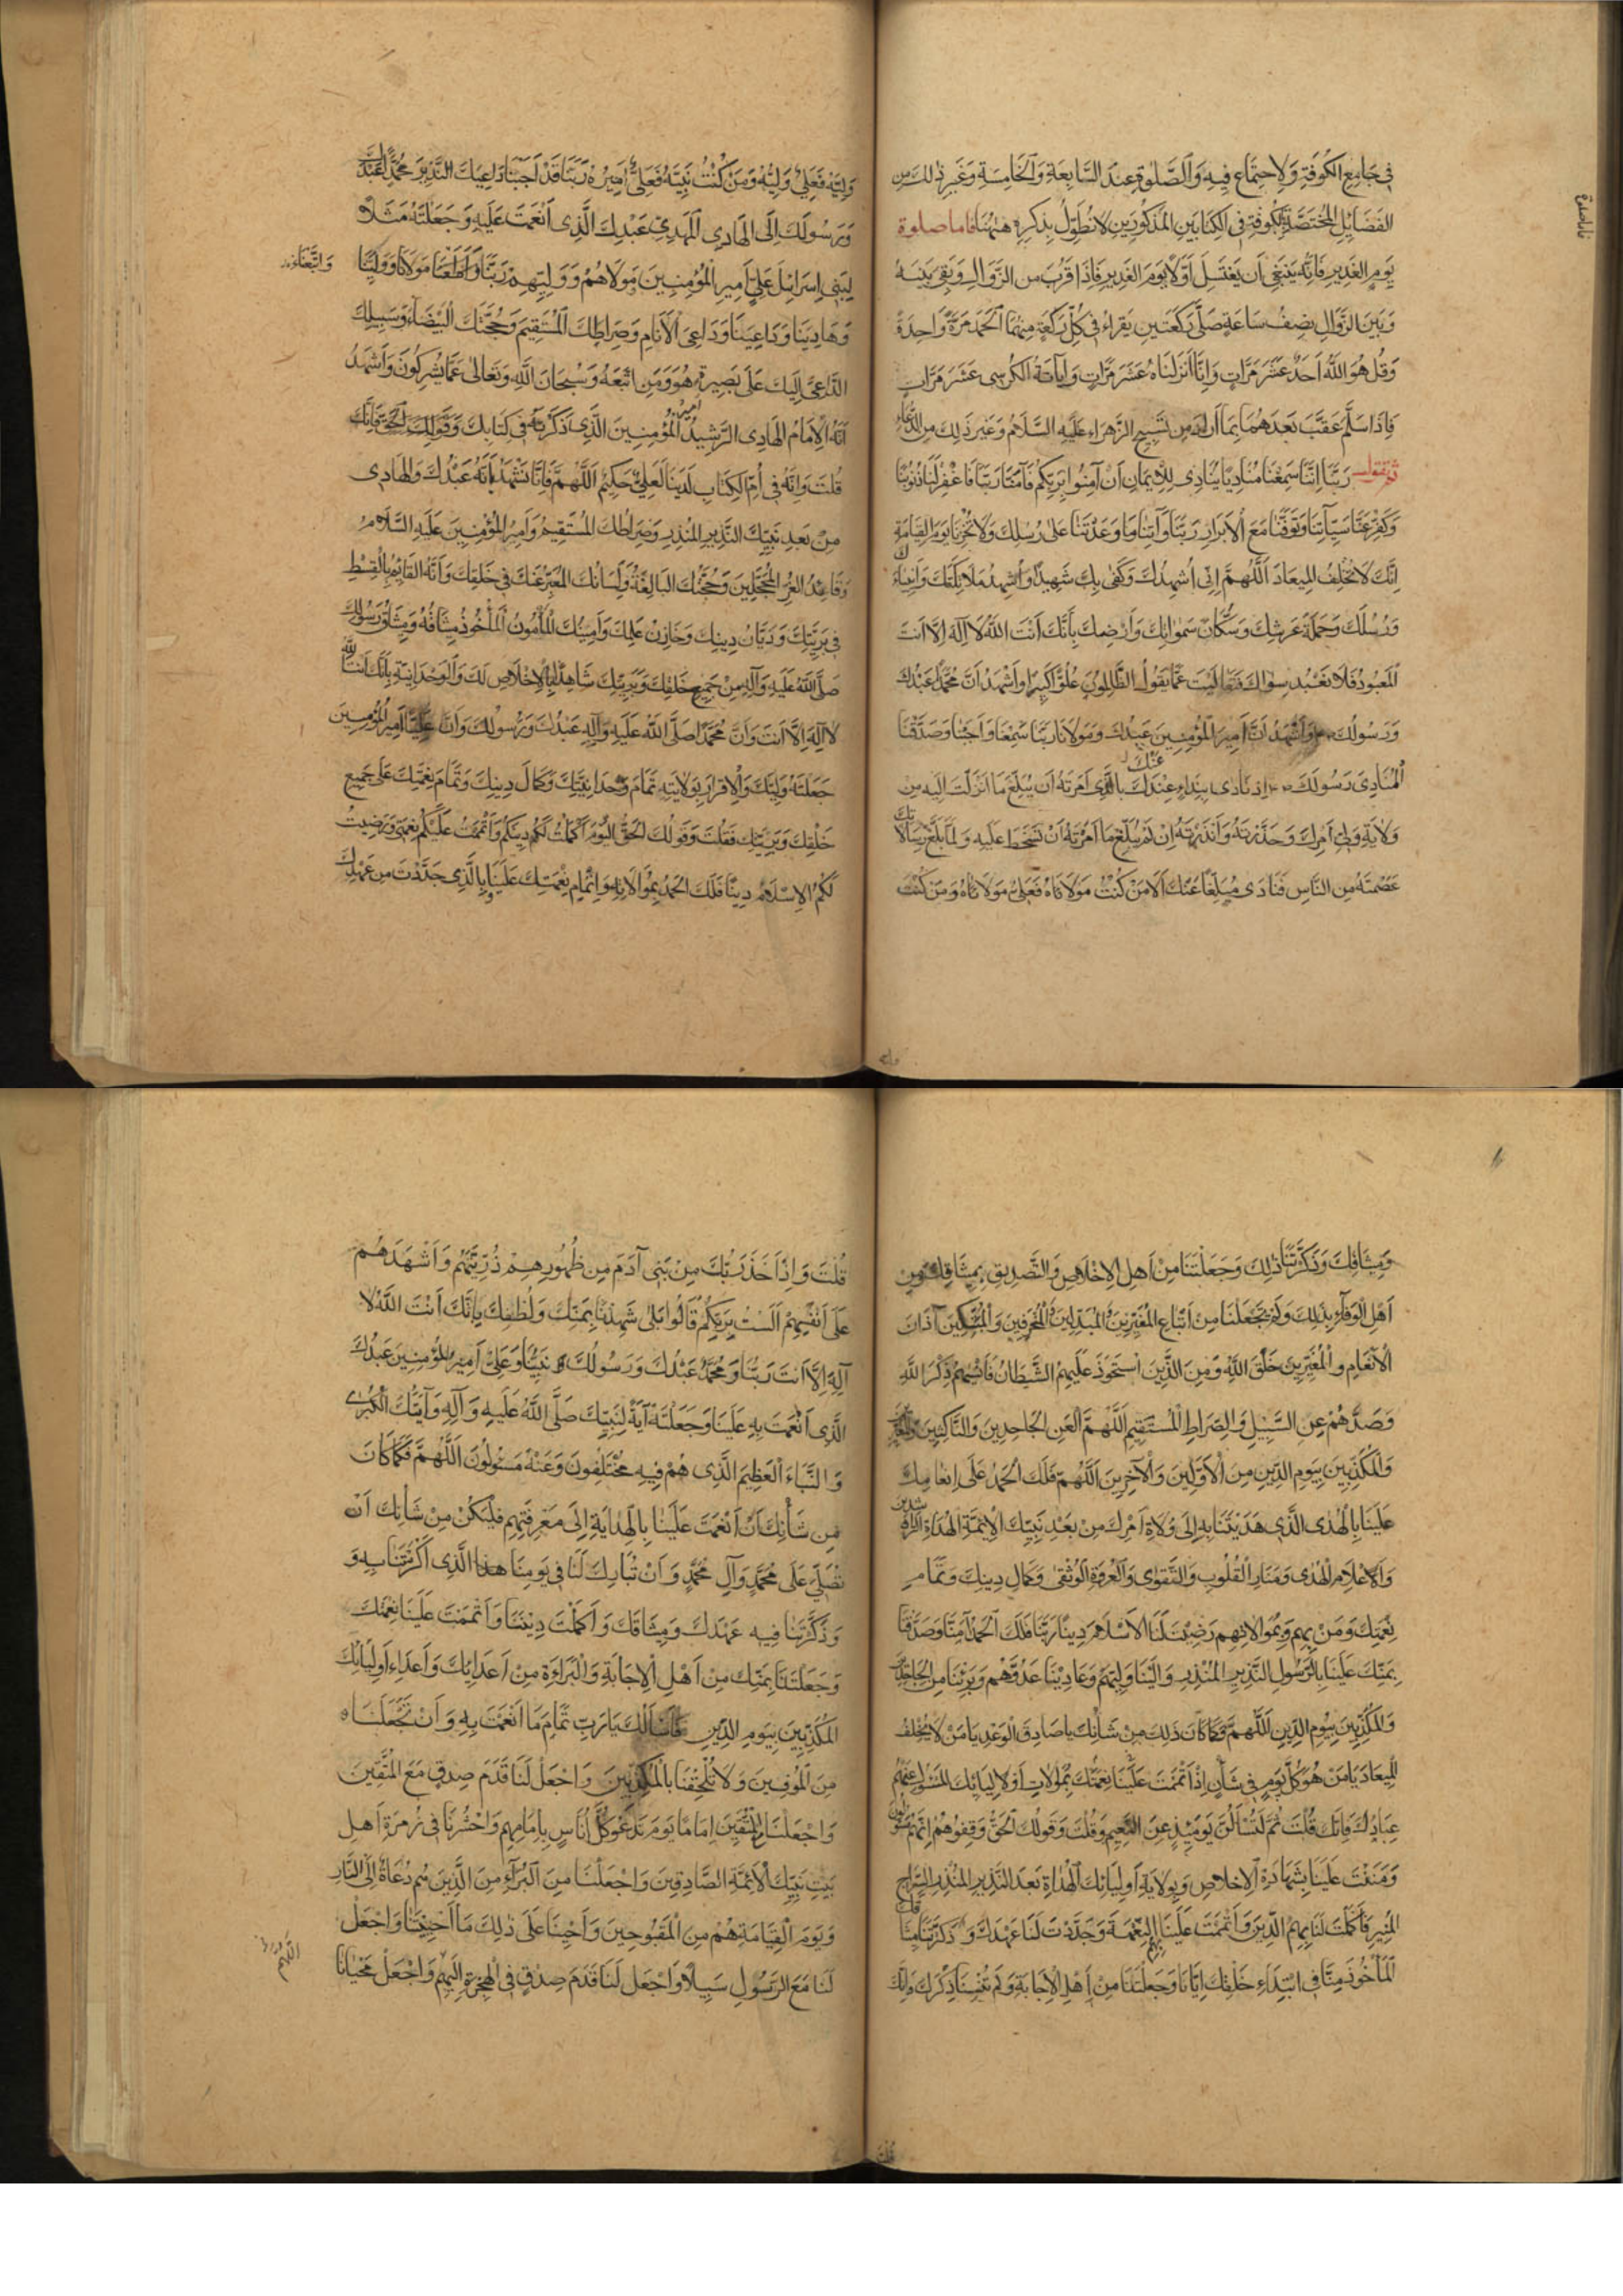 في جامع الكوفة ولاحتماع فيه والصلوة عند السابعة والخامسة وغير ذلك من
الفضايل المختصة بالكوفة في الكتابين المذكورين لانطول بذكره ههنا فاما صلوة
يوم الغدير فانه ينبغي ان يغتسل اولا يوم الغدير فاذا قرب من الزوال وبقي بينه
وبين الزوال نصف ساعة صلى ركعتين يقراء في كل ركعة منهما الحمد مرة واحدة
وقل هو الله احد عشر مرات وانا انزلناه عشر مرات واياة الكرسي عشر مرات
فاذا سلم عقب بعدهما بما اراد من تسبيح الزهراء عليه السلام وغير ذلك من الدعاء
ثم تقول ربنا اننا سمعنا مناديا ينادي للايمان ان آمنوا بربكم فآمنا ربنا فاغفر لنا ذنوبنا
وكفر عنا سيآتنا وتوفنا مع الابرار ربنا وآتنا ما وعدتنا على رسلك ولا تخزنا يوم القيامة
انك لا تخلف الميعاد اللهم اني اشهدك وكفى بك شهيدا واشهد ملائكتك وانبياءك
ورسلك وحملة عرشك وسكان سمواتك وارضك بأنك انت الله لا اله الا انت
المعبود فلا نعبد سواك فتعاليت عما يقول الظالمون علوا كبيرا واشهد ان محمدا عبدك
ورسولك واشهد ان امير المؤمنين عبدك ومولانا ربنا سمعنا واجبنا وصدقنا
المنادي رسولك اذ نادى بنداء عنك بالذي امرته ان يبلغ ما انزلت اليه من
ولاية ولي امرك وحذرته وانذرته ان لم يبلغ ما امرته ان تسخط عليه ولما بلغ رسالاتك
عصمته من الناس فنادى مبلغا عنك الا من كنت مولاه فعلي مولاه ومن كنت
وليه فعلي وليه ومن كنت نبيه فعلي اميره ربنا قد اجبنا داعيك النذير محمدا عبدك
ورسولك الى الهادي المهدي عبدك الذي انعمت عليه وجعلته مثلا
لبني اسرائيل علي امير المؤمنين ومولاهم ووليهم ربنا واطعنا مولانا وولينا
واتبعناه
وهادينا وداعينا وداعي الانام وصراطك المستقيم وحجتك البيضاء وسبيلك
الداعي اليك على بصيرة هو ومن اتبعه وسبحان الله وتعالى عما يشركون واشهد
انه الامام الهادي الرشيد امير المؤمنين الذي ذكرته في كتابك وقولك الحق فانك
قلت وانه في ام الكتاب لدينا لعلي حكيم اللهم فانا نشهد بانه عبدك والهادي
من بعد نبيك النذير المنذر وصراطك المستقيم وامير المؤمنين عليه السلام
وقائد الغر المحجلين وحجتك البالغة ولسانك المعبر عنك في خلقك وانه القائم بالقسط
في بريتك وديان دينك وخازن علمك وامينك المأمون المأخوذ ميثاقه وميثاق رسولك
صلى الله عليه وآله من جميع خلقك وبريتك شاهدا بالاخلاص لك والوحدانية بأنك انت الله
لا اله الا انت وان محمدا صلى الله عليه وآله عبدك ورسولك وان عليا امير المؤمنين
جعلته وليك والاقرار بولايته تمام وحدانيتك وكمال دينك وتمام نعمتك على جميع
خلقك وبريتك فقلت وقولك الحق اليوم اكملت لكم دينكم واتممت عليكم نعمتي ورضيت
لكم الاسلام دينا فلك الحمد بموالاته واتمام نعمتك علينا بالذي جددت من عهدك
وميثاقك وذكرتنا ذلك وجعلتنا من اهل الاخلاص والتصديق بميثاقك ومن
اهل الوفاء بذلك ولم تجعلنا من اتباع المغيرين والمبدلين والمحرفين والمبتكين آذان
الانعام والمغيرين خلق الله ومن الذين استحوذ عليهم الشيطان فانسيهم ذكر الله
وصدهم عن السبيل والصراط المستقيم اللهم العن الجاحدين والناكثين والمغيرين
والمكذبين بيوم الدين من الاولين والآخرين اللهم فلك الحمد على انعامك
علينا بالهدى الذي هديتنا به الى ولاة امرك من بعد نبيك الائمة الهداة الراشدين
والاعلام الهدى ومنار القلوب والتقوى والعروة الوثقى وكمال دينك وتمام
نعمتك ومن بهم وبموالاتهم رضيت لنا الاسلام دينا ربنا فلك الحمد آمنا وصدقنا
بمنك علينا بالرسول النذير المنذر والينا وليهم وعادينا عدوهم وبرئنا من الجاحدين
والمكذبين بيوم الدين اللهم فكما كان ذلك من شأنك يا صادق الوعد يا من لا يخلف
الميعاد يا من هو كل يوم في شأن اذ اتممت علينا نعمتك بموالات اوليائك المسئول عنهم
عبادك فانك قلت ثم لتسألن يومئذ عن النعيم وقلت وقولك الحق وقفوهم انهم مسؤلون
ومننت علينا بشهادة الاخلاص وبولاية اوليائك الهداة بعد النذير المنذر السراج
المنير فاكملت لنا بهم الدين واتممت علينا النعمة وجددت لنا عهدك وذكرتنا ميثاقك
المأخوذ منا في ابتداء خلقك ايانا وجعلتنا من اهل الاجابة ولم تنسنا ذكرك فانك
قلت واذ اخذ ربك من بني آدم من ظهورهم ذريتهم واشهدهم
على انفسهم الست بربكم قالوا بلى شهدنا بمنك ولطفك بانك انت الله لا
اله الا انت ربنا ومحمد عبدك ورسولك نبينا وعلي امير المؤمنين عبدك
الذي انعمت به علينا وجعلته آية لنبيك صلى الله عليه وآله وآيتك الكبرى
والنباء العظيم الذي هم فيه مختلفون وعنه مسئولون اللهم فكما كان
من شأنك ان انعمت علينا بالهداية الى معرفتهم فليكن من شأنك ان
تصلي على محمد وآل محمد وان تبارك لنا في يومنا هذا الذي اكرمتنا به و
ذكرتنا فيه عهدك وميثاقك واكملت ديننا واتممت علينا نعمتك
وجعلتنا بمنك من اهل الاجابة والبراءة من اعدائك واعداء اوليائك
المكذبين بيوم الدين فاسألك يا رب تمام ما انعمت به وان تجعلنا
من الموفين ولا تلحقنا بالمكذبين واجعل لنا قدم صدق مع المتقين
واجعلنا للمتقين اماما يوم تدعو كل اناس بامامهم واحشرنا في زمرة اهل
بيت نبيك الائمة الصادقين واجعلنا من البراء من الذين هم دعاة الى النار
ويوم القيامة هم من المقبوحين واحينا على ذلك ما احييتنا واجعل
لنا مع الرسول سبيلا واجعل لنا قدم صدق في الهجرة اليهم واجعل محيانا
اللهم